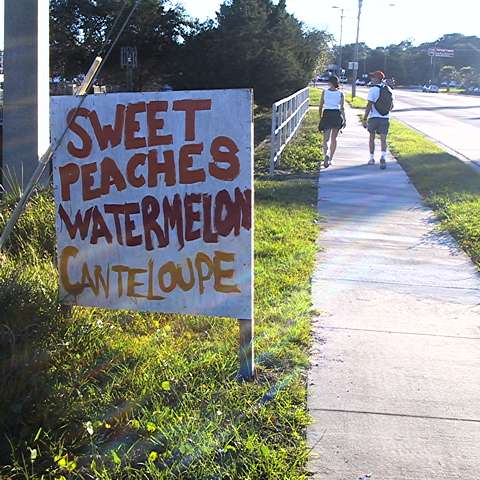 SWEET
PEACHES
WATERMELON
CANTELOUPE